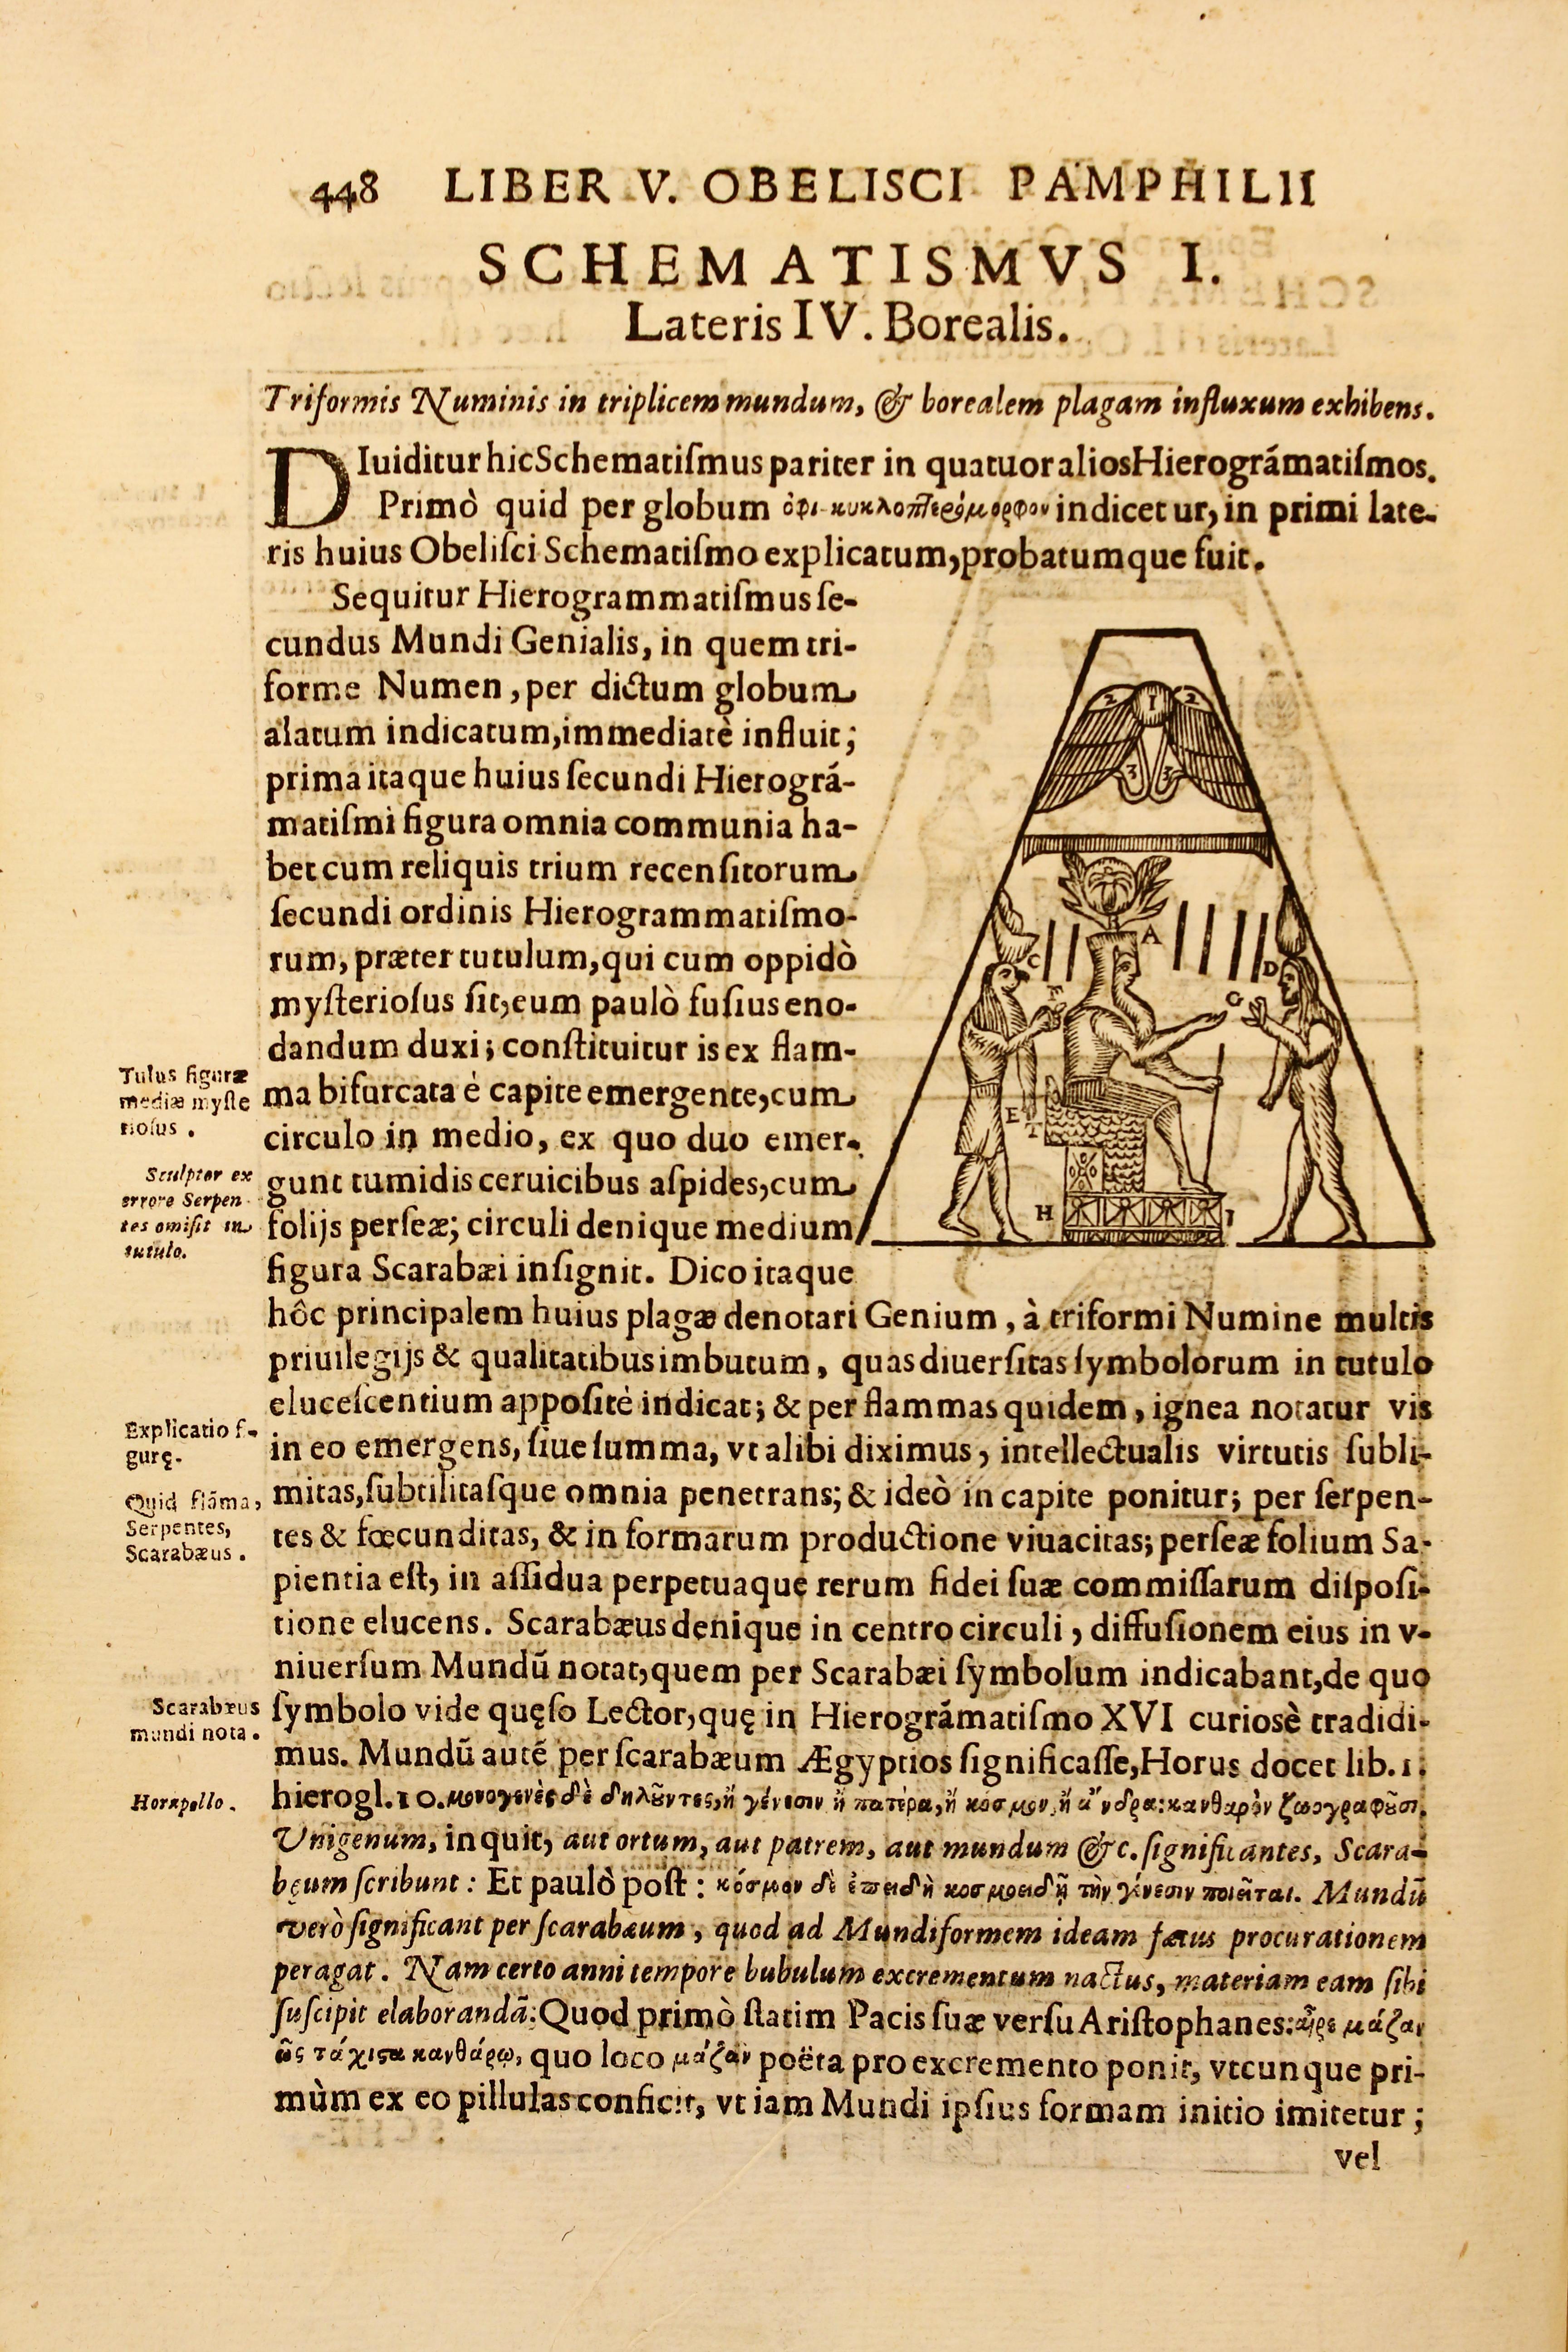 448 LIBER V. OBELISCI PAMPHILII
SCHEMATISMVS I.
Lateris IV. Borealis.
Triformis Numinis in triplicem mundum, & borealem plagam influxum exhibens.
DIuiditur hic Schematiſmus pariter in quatuor alios Hierográmatiſmos.
Primò quid per globum ὀφι-κυκλοπτερόμορφον indicetur, in primi late-
ris huius Obeliſci Schematiſmo explicatum, probatumque fuit.
Sequitur Hierogrammatiſmus ſe-
cundus Mundi Genialis, in quem tri-
forme Numen, per dictum globum
alatum indicatum, immediatè influit;
prima itaque huius ſecundi Hierográ-
matiſmi figura omnia communia ha-
bet cum reliquis trium recenſitorum
ſecundi ordinis Hierogrammatiſmo-
rum, præter tutulum, qui cum oppidò
myſterioſus ſit, eum paulò fuſius eno-
dandum duxi; conſtituitur is ex flam-
ma bifurcata è capite emergente, cum
circulo in medio, ex quo duo emer-
gunt tumidis ceruicibus aſpides, cum
folijs perſeæ; circuli denique medium
figura Scarabæi inſignit. Dico itaque
hôc principalem huius plagæ denotari Genium, à triformi Numine multis
priuilegijs & qualitatibus imbutum, quas diuerſitas ſymbolorum in tutulo
eluceſcentium appoſitè indicat; & per flammas quidem, ignea notatur vis
in eo emergens, ſiue ſumma, vt alibi diximus, intellectualis virtutis ſubli-
mitas, ſubtilitaſque omnia penetrans; & ideò in capite ponitur; per ſerpen-
tes & fœcunditas, & in formarum productione viuacitas; perſeæ folium Sa-
pientia eſt, in aſſidua perpetuaque rerum fidei ſuæ commiſſarum diſpoſi-
tione elucens. Scarabæus denique in centro circuli, diffuſionem eius in v-
niuerſum Mundũ notat, quem per Scarabæi ſymbolum indicabant, de quo
ſymbolo vide quęſo Lector, quę in Hierográmatiſmo XVI curioſè tradidi-
mus. Mundũ autẽ per ſcarabæum Ægyptios ſignificaſſe, Horus docet lib. 1.
hierogl. 10. μονογενὲς δὲ δηλοῦντες, ἢ γένεσιν ἢ πατέρα, ἢ κόσμον, ἢ ἄνδρα: κανθαρὸν ζωογραφοῦσι.
Vnigenum, inquit, aut ortum, aut patrem, aut mundum &c. ſignificantes, Scara-
bęum ſcribunt: Et paulò poſt: κόσμον δὲ ἐπειδὴ κοσμοειδῆ τὴν γένεσιν ποιεῖται. Mundũ
verò ſignificant per ſcarabæum, quod ad Mundiformem ideam fœtus procurationem
peragat. Nam certo anni tempore bubulum excrementum nactus, materiam eam ſibi
ſuſcipit elaborandã: Quod primò ſtatim Pacis ſuæ verſu Ariſtophanes: αἶρε μάζαν
ὡς τάχιστα κανθάρῳ, quo loco μάζαν poëta pro excremento ponit, vtcunque pri-
mùm ex eo pillulas conficit, vt iam Mundi ipſius formam initio imitetur;
vel
Tulus figuræ
mediæ myſte
rioſus.
Sculptor ex
errore Serpen-
tes omiſit in
tutulo.
Explicatio fi-
gurę.
Quid flãma,
Serpentes,
Scarabæus.
Scarabæus
mundi nota.
Horapollo.
2 1 2
3 3
A
C
D
F
G
E
T
H
I